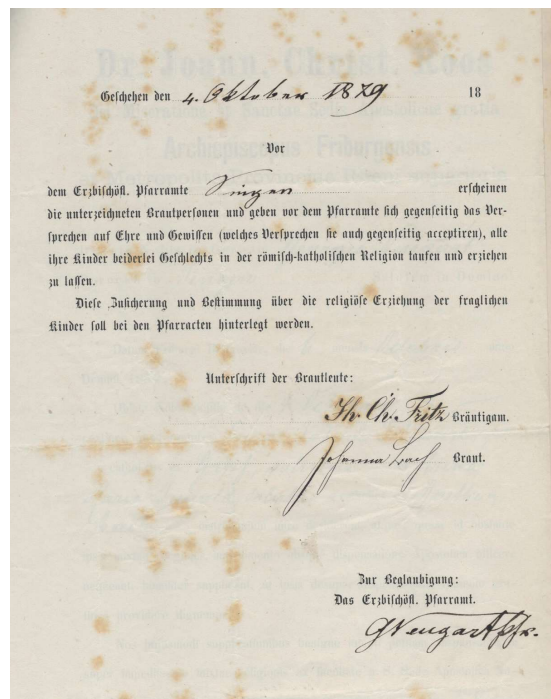 Geschehen den 4. Oktober 1889 18
Vor
dem Erzbischöfl. Pfarramte Singen erscheinen
die unterzeichneten Brautpersonen und geben vor dem Pfarramte sich gegenseitig das Ver-
sprechen auf Ehre und Gewissen (welches Versprechen sie auch gegenseitig acceptiren), alle
ihre Kinder beiderlei Geschlechts in der römisch-katholischen Religion taufen und erziehen
zu lassen.
Diese Zusicherung und Bestimmung über die religiöse Erziehung der fraglichen
Kinder soll bei den Pfarracten hinterlegt werden.
Unterschrift der Brautleute:
Th. Ch. Fritz Bräutigam.
Johanna Bach Braut.
Zur Beglaubigung:
Das Erzbischöfl. Pfarramt.
G Neugart Pfr.